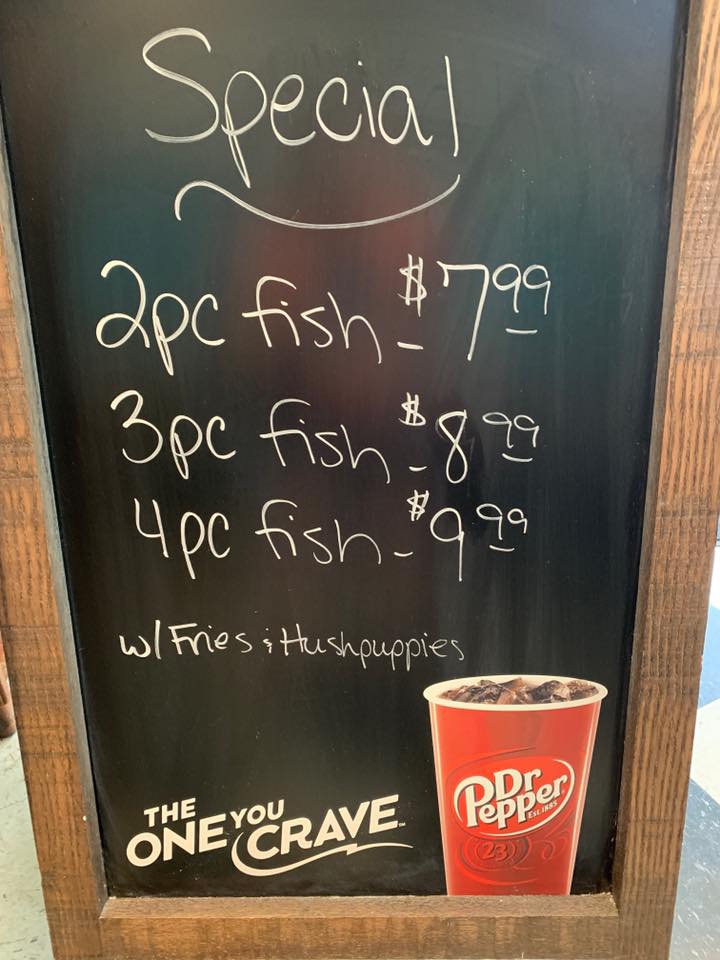 Special
2pc fish - $7.99
3pc fish - $8.99
4pc fish - $9.99
w/ Fries & Hushpuppies
THE
ONE YOU
CRAVE™
Dr
Pepper
EST. 1885
23